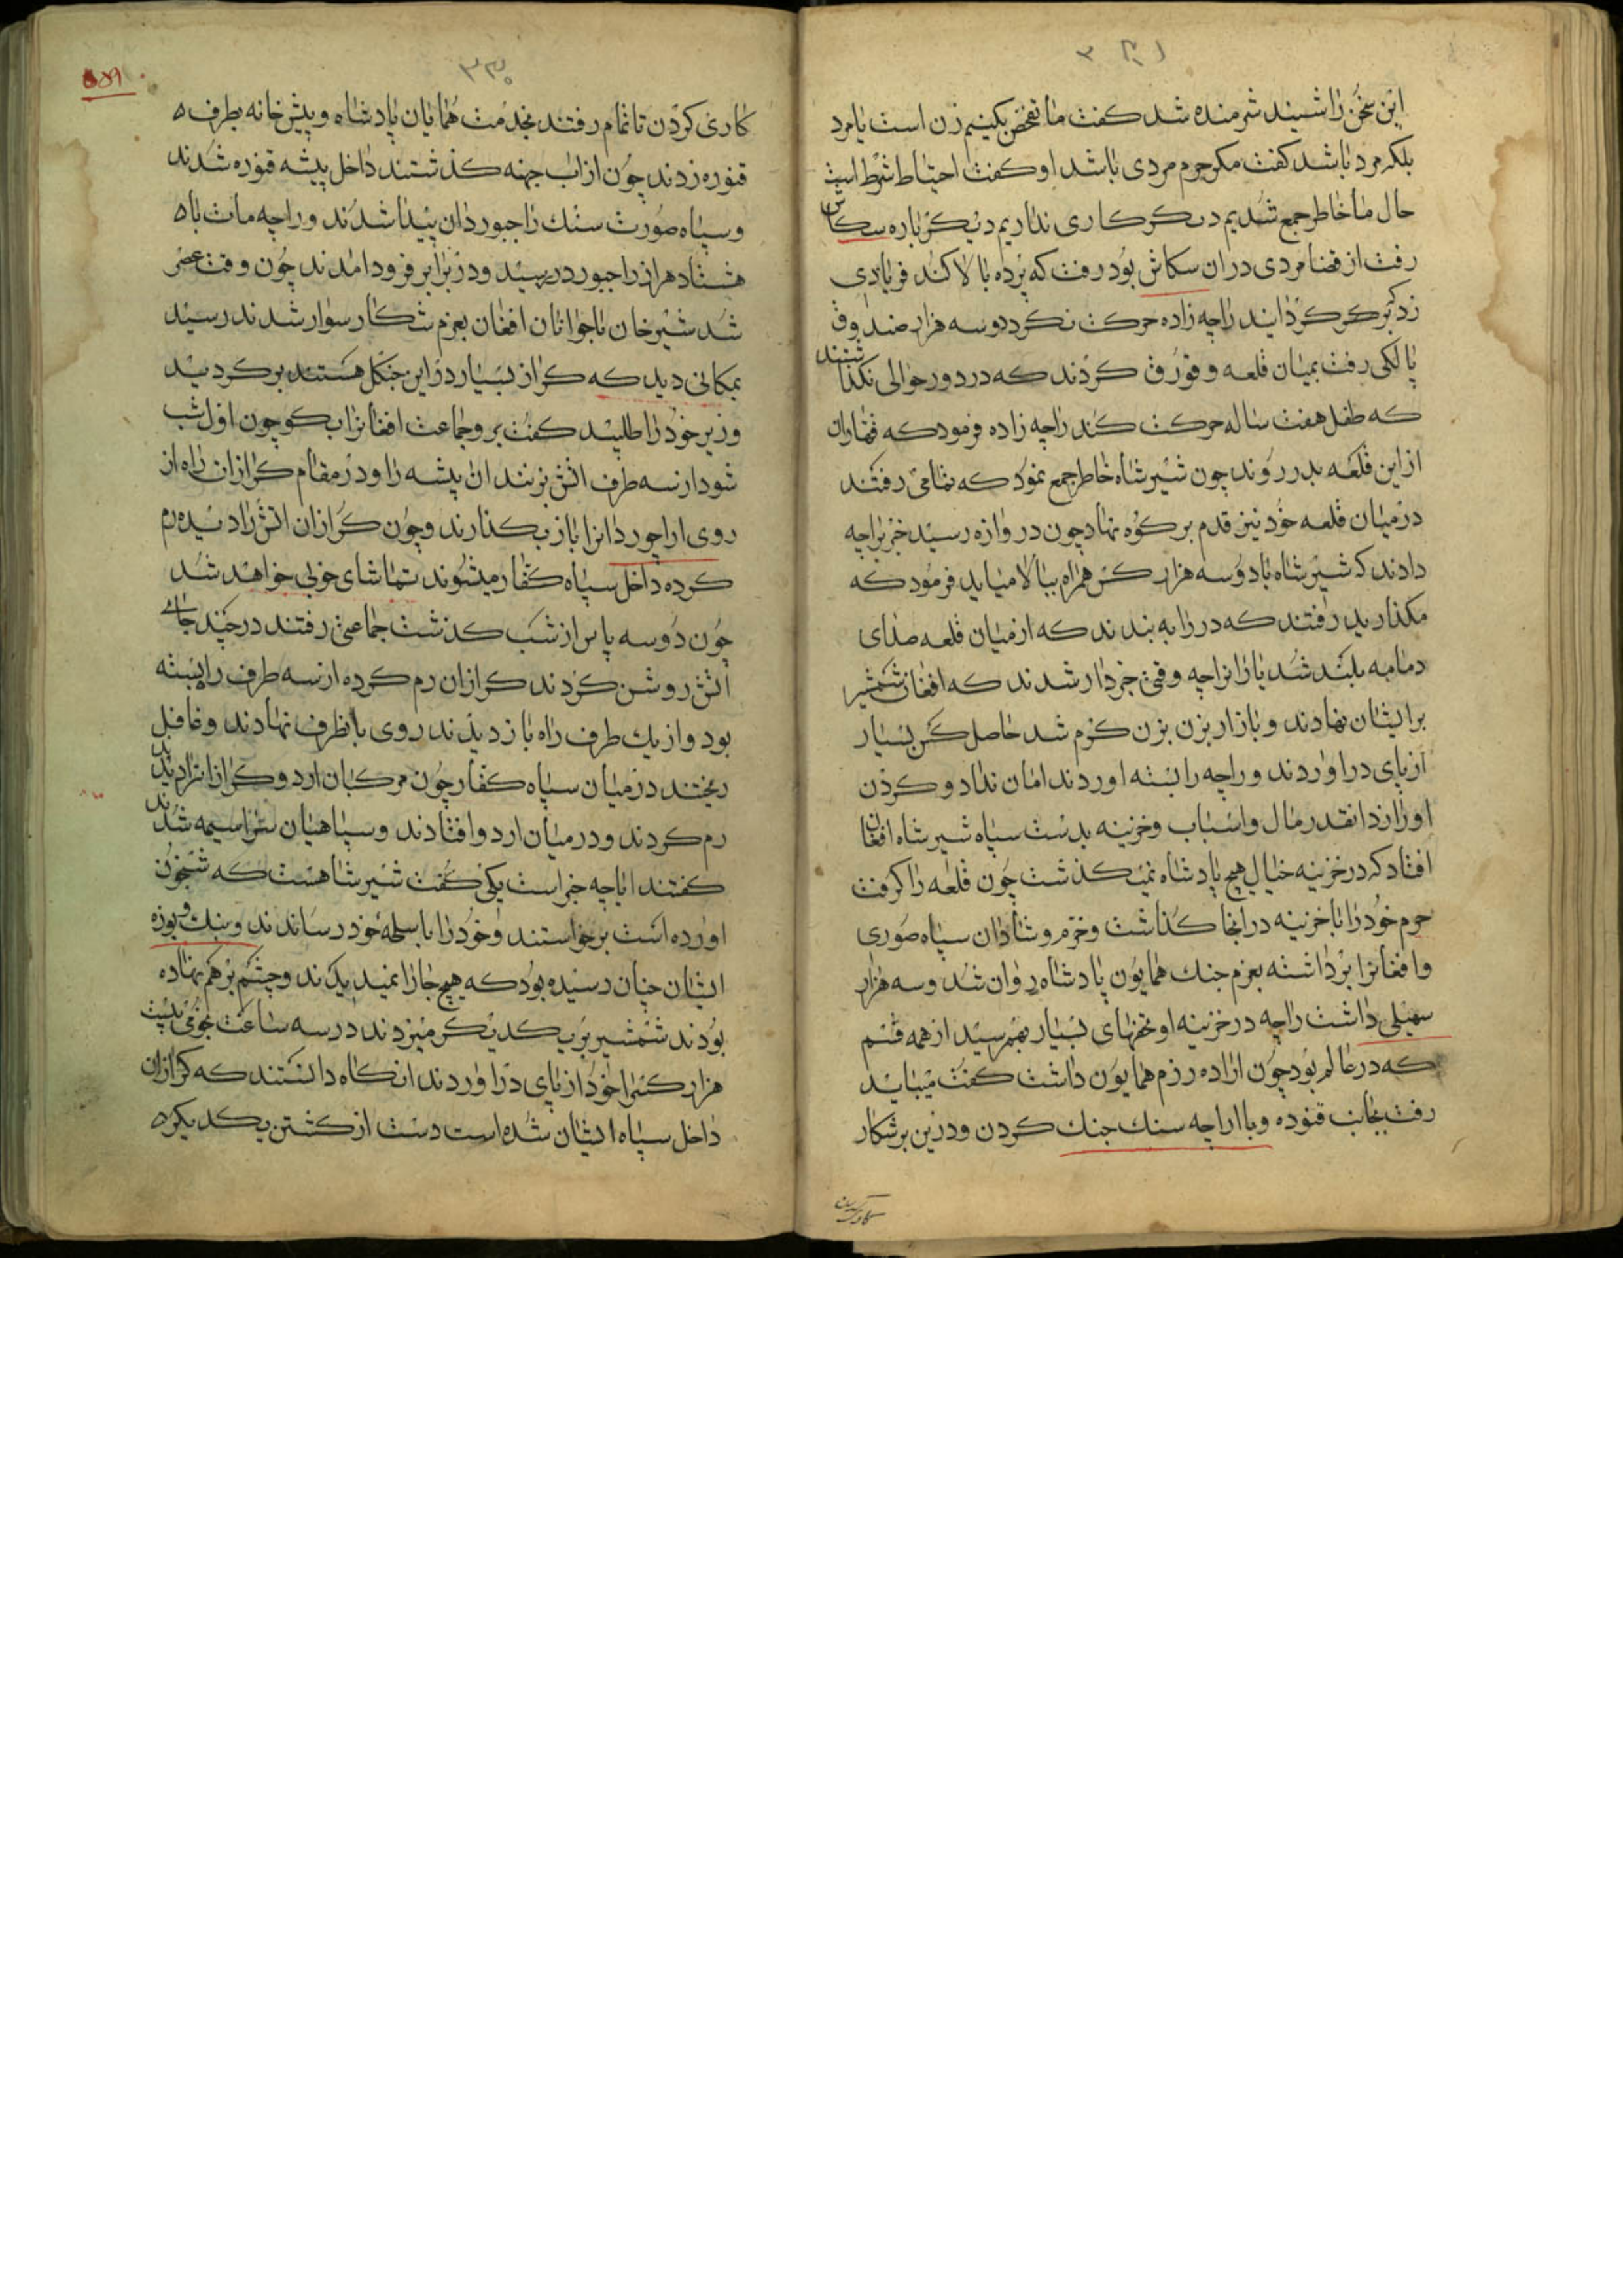 ۳۴۱
این سخن را شنید شرمنده شد کفت ما تفحص بکنیم زن است یا مرد
بلکه مرد باشد کفت مکر حرم مردی باشد او کفت احتیاط شرط است
حال ما خاطر جمع شدیم دیکر کاری نداریم دیکر باره سکاش
رفت از قضا مردی در آن سکاش بود رفت که پرده بالا کند فریادی
زد که بر کردانید راچه زاده حرکت نکرد دو سه هزار صندوق
پالکی رفت بمیان قلعه و قورق کردند که در دور حوالی نکذاشتند
که طفل هفت ساله حرکت کند راچه زاده فرمود که
از این قلعه بدر روند چون شیرشاه خاطر جمع نمود که تمامی رفتند
در میان قلعه خود نیز قدم بر کوه نهاد چون دروازه رسید خبر براچه
دادند که شیرشاه با دو سه هزار کس همراه ببالا میاید فرمود که
مکذارید رفتند که در را به بندند که از میان قلعه صدای
دمامه بلند شد یاران راچه وقتی خبردار شدند که افغان شمشیر
بر ایشان نهادند و بازار بزن بزن کرم شد حاصل کس بسیار
از پای در اوردند و راچه را بسته اوردند امان نداد و کردن
او را زد انقدر مال و اسباب و خزینه بدست سپاه شیرشاه افغان
افتاد که در خزینه خیال هیچ پادشاه نمیکذشت چون قلعه را کرفت
حرم خود را با خزینه در انجا کذاشت و خرم و شادان سپاه صوری
و افغانرا برداشته بعزم جنک همایون پادشاه روان شد و سه هزار
سهیلی داشت راچه در خزینه او تحفهای بسیار بهم رسید از همه قسم
که در عالم بود چون اراده رزم همایون داشت کفت میباید
رفت بجانب قنوده و با راچه سنک جنک کردن و در بر شکار
۳۴۰
کاری کردن تا تمام رفتند بخدمت همایان پادشاه و پیش خانه بطرف
قنوره زدند چون از اب جهنه کذشتند داخل پیشه قنوره شدند
و سپاه صورت سنک راجبوردان پیدا شدند و راچه مات باه
هشتاد هزار راجبورد رسید و در برابر فرود امدند چون وقت عصر
شد شیرخان با جوانان افغان بعزم شکار سوار شدند رسید
بمکانی دید که کراز بسیار در این جنکل هستند بر کردید
وزیر خود را طلبید کفت برو جماعت افغانرا بکو چون اول شب
شود از سه طرف اتش بزنند ان پیشه را و در مقام کرازان راه از
روی اراجوردانرا باز بکذارند و چون کرازان اتش را دیده رم
کرده داخل سپاه کفار میشوند تماشای خوبی خواهد شد
چون دو سه پاس از شب کذشت جماعتی رفتند در چند جای
اتش روشن کردند کرازان رم کرده از سه طرف راه بسته
بود و از یک طرف راه باز دیدند روی بانطرف نهادند و غافل
ریختند در میان سپاه کفار چون مرکبان اردو کرازانرا دیدند
رم کردند و در میان اردو افتادند و سپاهیان سراسیمه شدند
کفتند ایا چه خبر است یکی کفت شیرشاهست که شبخون
اورده است برخواستند و خود را با سلحه خود رساندند و بنک و بوزه
ایشان چنان رسیده بود که هیچ جا را نمیدیدند و چشم بر هم نهاده
بودند شمشیر بر یکدیکر میزدند در سه ساعت نجومی بیست
هزار کس را خود از پای در اوردند انکاه دانستند که کرازان
داخل سپاه ایشان شده است دست از کشتن یکدیکر